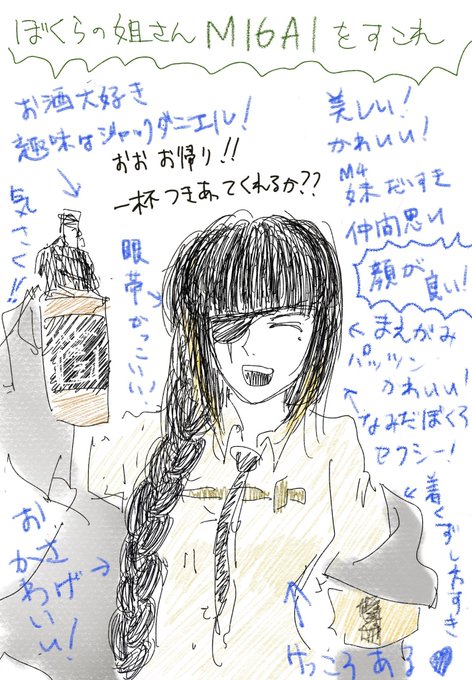 ぼくらの姐さんM16A1をすこれ
お酒大好き
趣味はジャックダニエル!
おお お帰り!!
一杯つきあってくれるか??
気さく!!
眼帯かっこいい!
美しい!
かわいい!
M4
妹だいすき
仲間思い
顔が良い!
まえがみ
パッツン
かわいい!
なみだぼくろ
セクシー!
着くずしわすき
おさげ
かわいい!
けっこうある